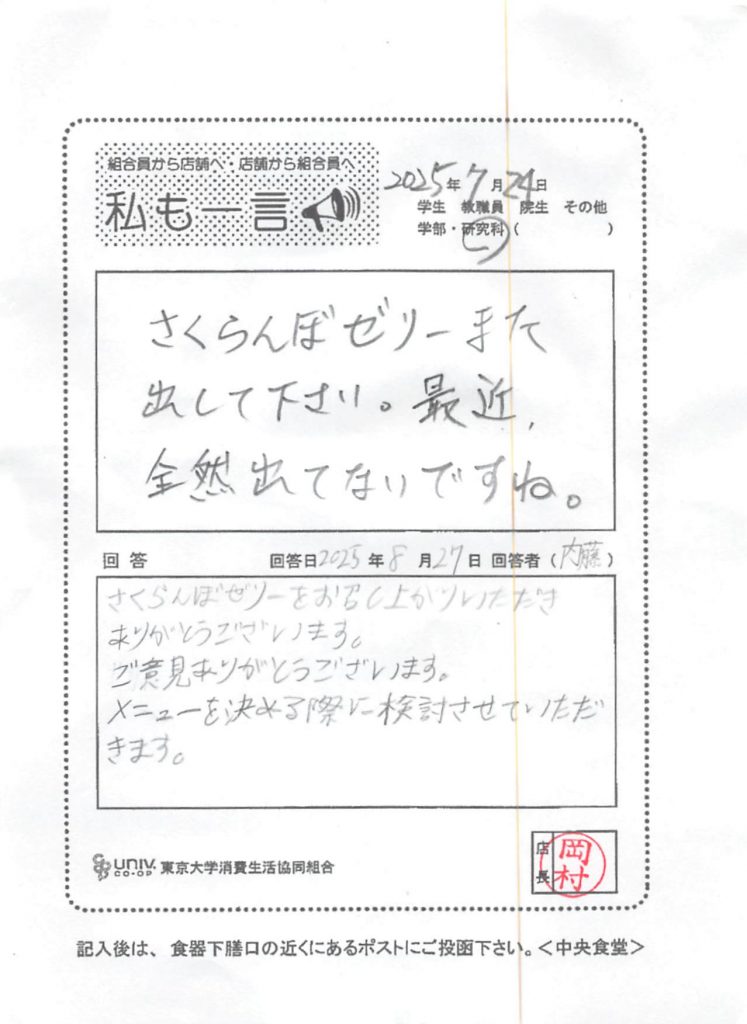 組合員から店舗へ・店舗から組合員へ
私も一言
2025年7月24日
学生 教職員 院生 その他
学部・研究科( )
さくらんぼゼリーまた
出して下さい。最近,
全然出てないですね。
回答 回答日2025年8月27日 回答者(内藤)
さくらんぼゼリーをお召し上がりいただき
ありがとうございます。
ご意見ありがとうございます。
メニューを決める際に検討させていただ
きます。
UNIV. CO-OP 東京大学消費生活協同組合
店長 岡村
記入後は、食器下膳口の近くにあるポストにご投函下さい。<中央食堂>